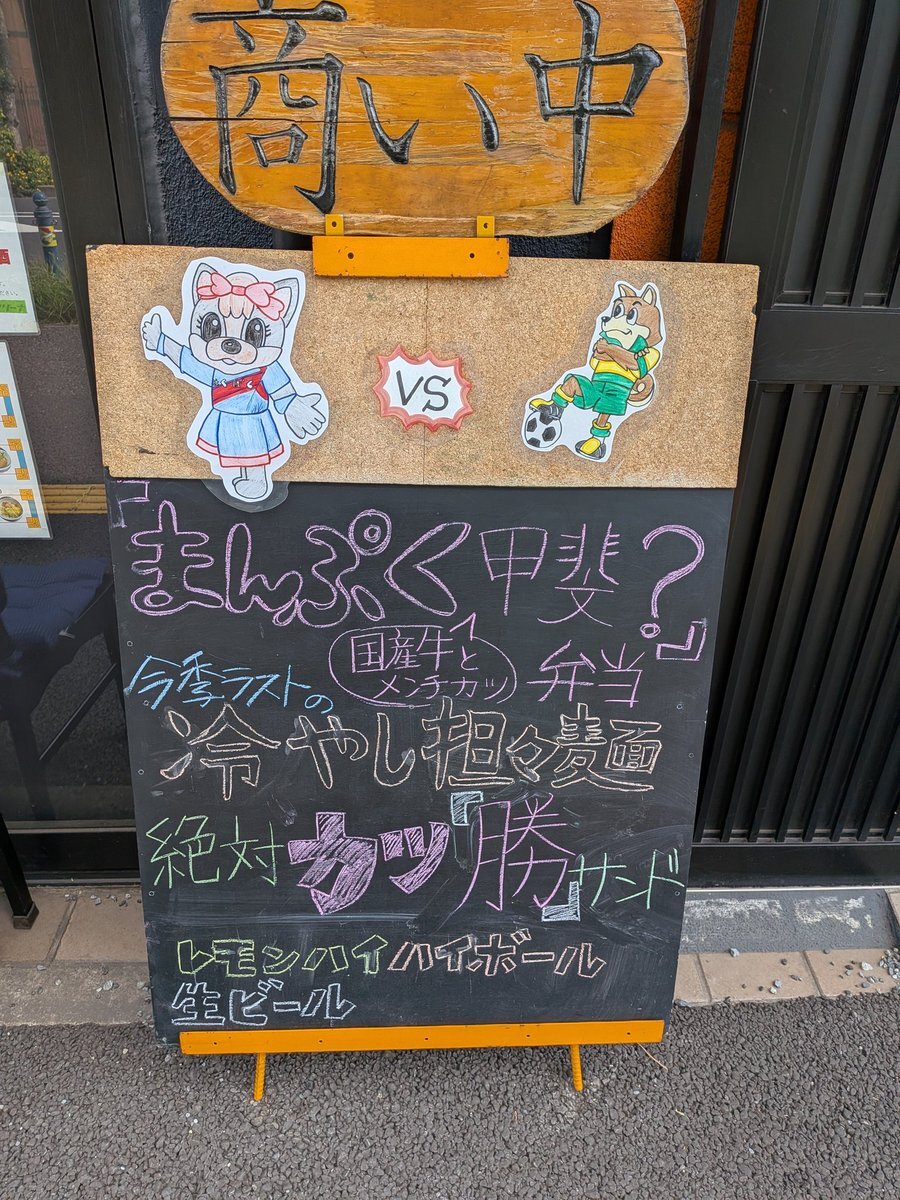 商い中
VS
「まんぷく甲斐？」
国産牛と
メンチカツ
弁当
今季ラストの
冷やし担々麺
絶対カツ「勝」サンド
レモンハイ ハイボール
生ビール